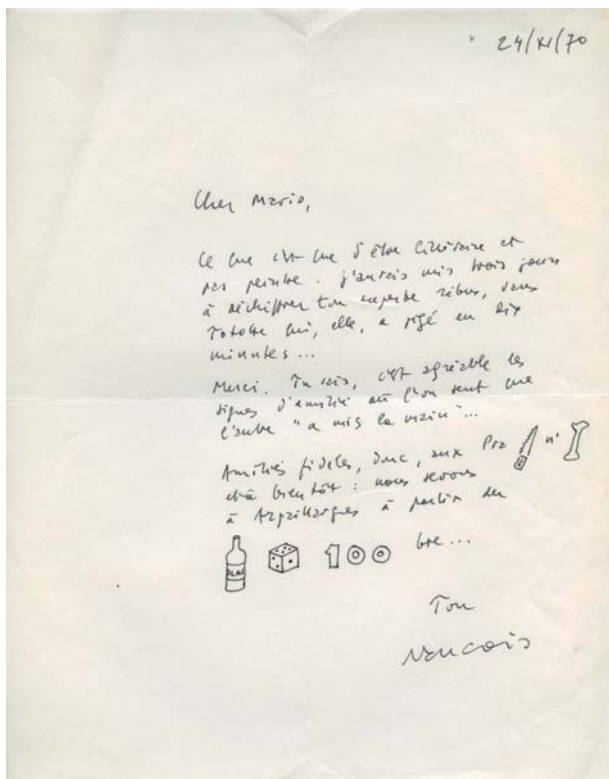 24/XI/70
Cher Mario,
Ce que c'est que d'être littéraire et
pas peintre. J'aurais mis trois jours
à déchiffrer ton superbe rébus, sans
Totote qui, elle, a pigé en dix
minutes...
Merci. Tu sais, c'est agréable les
signes d'amitié où l'on sent que
l'autre "a mis la main"...
Amitiés fidèles, donc, aux Pra n'
et à bientôt : nous serons
à Arpaillargues à partir du
100 bre...
Ton
François